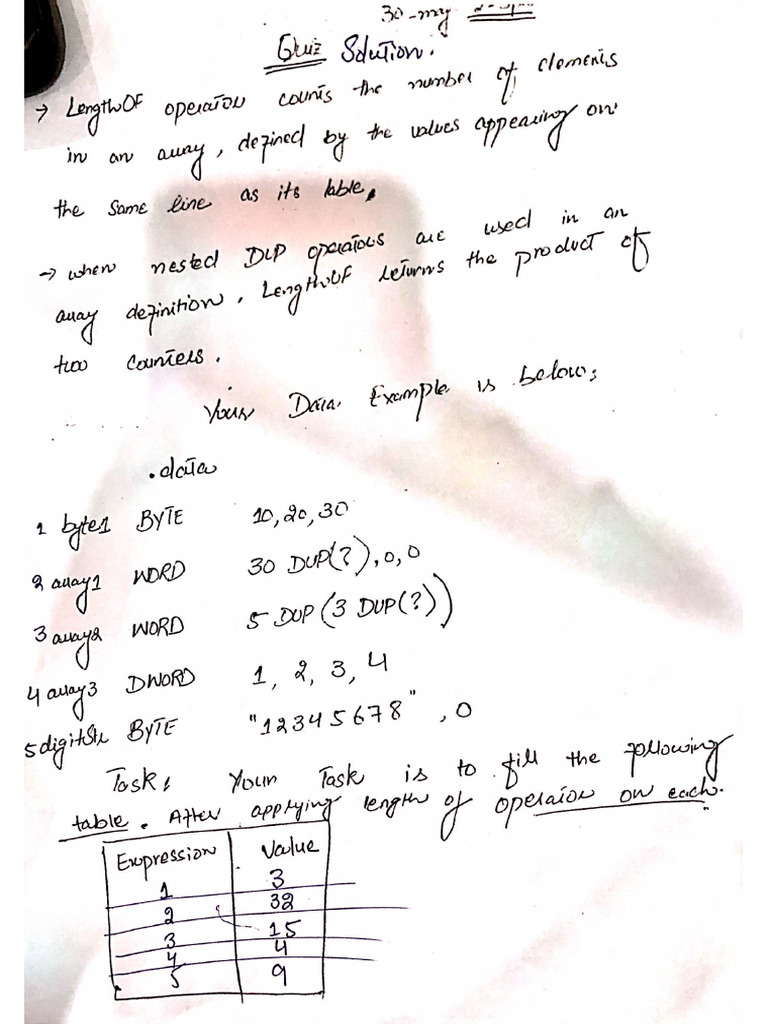 30-may
Quiz Solution.
→ LengthOF operator counts the number of elements
in an array, defined by the values appearing on
the same line as its lable.
→ when nested DUP operators are used in an
array definition, LengthOF returns the product of
two counters.
Your Data Example is below:
.data
1 byte1 BYTE 10,20,30
2 array1 WORD 30 DUP(?),0,0
3 array2 WORD 5 DUP(3 DUP(?))
4 array3 DWORD 1, 2, 3, 4
5 digitStr BYTE "12345678", 0
Task: Your Task is to fill the following
table. After applying length of operator on each.
Expression Value
1 3
2 32
3 15
4 4
5 9